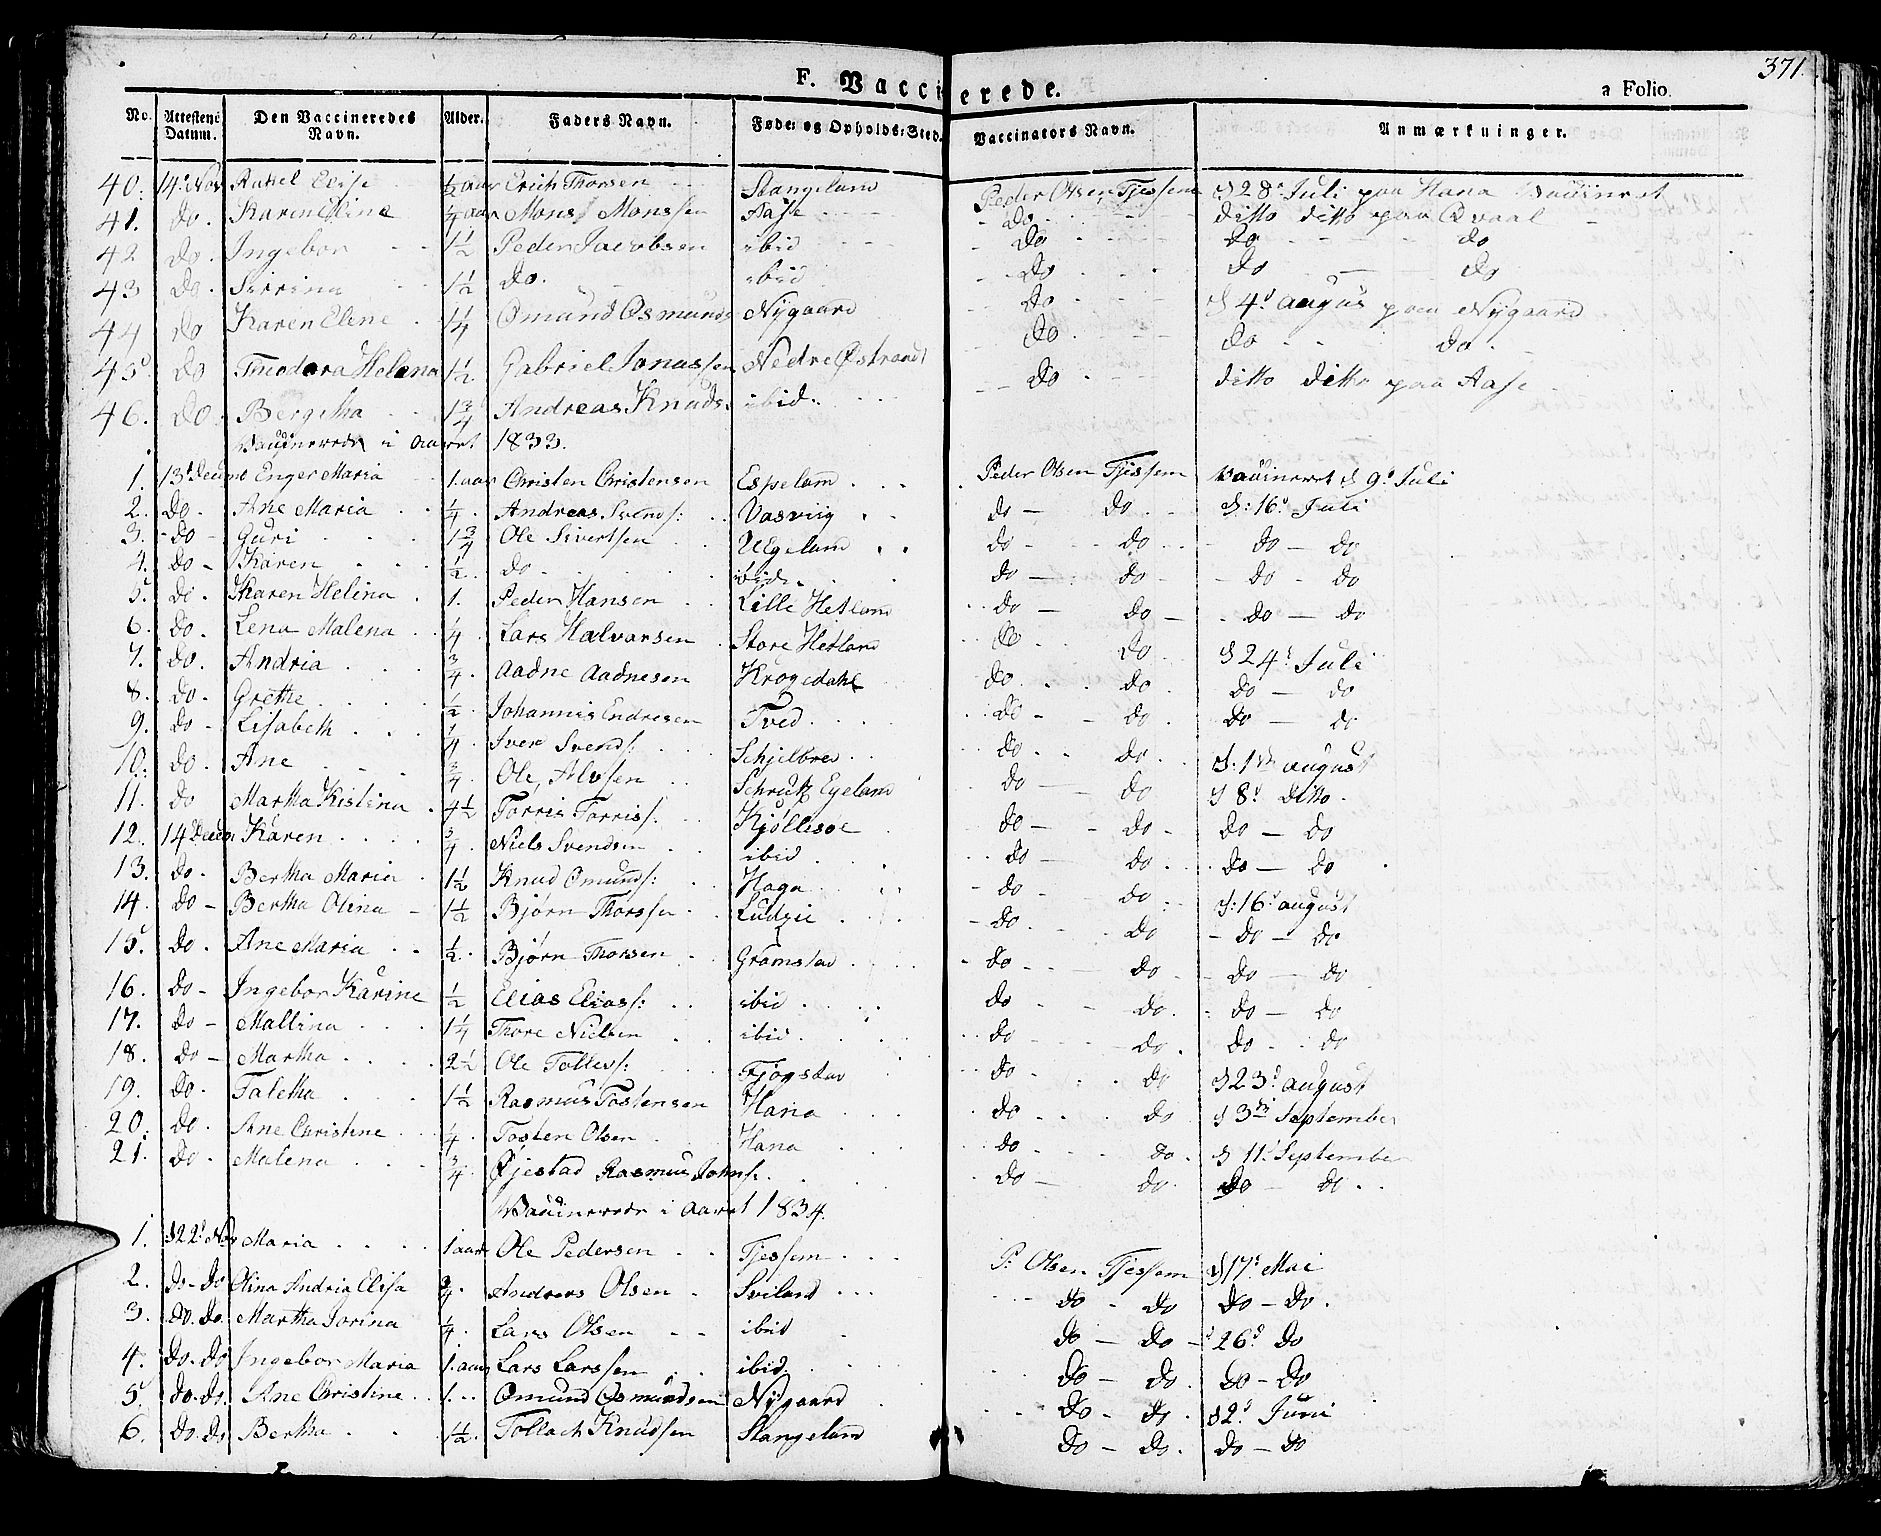 371.
F. Vaccinerede. a Folio.
No. Attestens Datum. Den Vaccineredes Navn. Alder. Faders Navn. Føde- og Opholds-Sted. Vaccinators Navn. Anmærkninger.
40. 14d Nov Rakel Elise ½ aar Erich Thorsen Stangeland Peder Olsen Tjessem d 28d Juli paa Hana Vaccineret
41. do. Karen Eline ¼ aar Mons Monssen Aase do ditto ditto paa Qvaal
42 do. Ingebor 1½ Peder Jacobsen ibid do do do
43 do. Sirrina 1½ do. ibid do do do
44 do Karen Elene 1¼ Omund Osmunds Nygaard do d 4d augus paa Nygaard
45. do Theodora Helena 1½ Gabriel Jonassen Nedre Østraadt do do do.
46. do. Bergitha 1¾ Andreas Knuds. ibid. do ditto ditto paa Aase
Vaccinerede i Aaret 1833.
1. 13d Decemb Enger Maria 1 aar Christen Christensen Espeland Peder Olsen Tjessem Vaccineret d 9d Juli
2. do. Ane Maria ¼ Andreas Svends: Vasviig do do d: 16d Juli
3. do Guri 1¾ Ole Sivertsen Uegeland do do do do
4. do Karen ½ do ibid. do do do do
5. do. Karen Helina 1. Peder Hansen Lille Hetland do do do do
6. do. Lena Malena ¼ Lars Halvorsen Store Hetland do do d 24d Juli
7. do. Andria ¾ Aadne Aadnesen Krogedahl do do do do
8. do. Grethe ½ Johannis Endresen Tved do do do do
9. do Lisabeth ¼ Iver Svends: Schjelbred do do d: 1ste august
10. do. Ane ¾ Ole, Alvsen Schrutz Eyeland do do d 8d ditto.
11. do Martha Kistina 4½ Torris Torriss: Kjøllesoe do do do do
12. 14 Decem Karen ¾ Niels Svendsen ibid do do do do
13. do. Bertha Maria 1½ Knud Omunds: Hoga do do d: 16d august
14. do Bertha Olina 1½ Bjørn Thorssen do do do do
15. do. Ane Maria ½ Bjørn Thorsen Gramstad do do do do
16. do Ingebor Karine ½ Elias Eliass: ibid do do do do
17. do Mallina 1¼ Thore Nielsen ibid do do do do
18. do Martha 2½ Ole Tolless: Fjogstad do do d 23d august
19. do. Taletha 1½ Rasmus Tostensen Hana do do d 3die September
20. do. Ane Christine ¼ Tosten Olsen Hana do do d 11d September
21. do. Malena ¾ Øjestad Rasmus Johns: do do do do
Vaccinerede i Aaret 1834.
1. d 22d Nov Maria 1 aar Ole Pedersen Tjessem P: Olsen Tjessem d 17d Mai
2. do-do Olina Andria Elisa ¾ Andreas Olsen Sviland do do do - do.
3. do. do. Martha Jorina ¼ Lars Olsen ibid do do d 26d do
4. do. do Ingebor Maria 1. aar Lars Larssen ibid. do do. do - do
5. do. do. Ane Christine 1. Omund Osmundsen Nygaard do do d 2d Juni
6. do. do Bertha 1½ Tollach Knudsen Stangeland do do. do - do